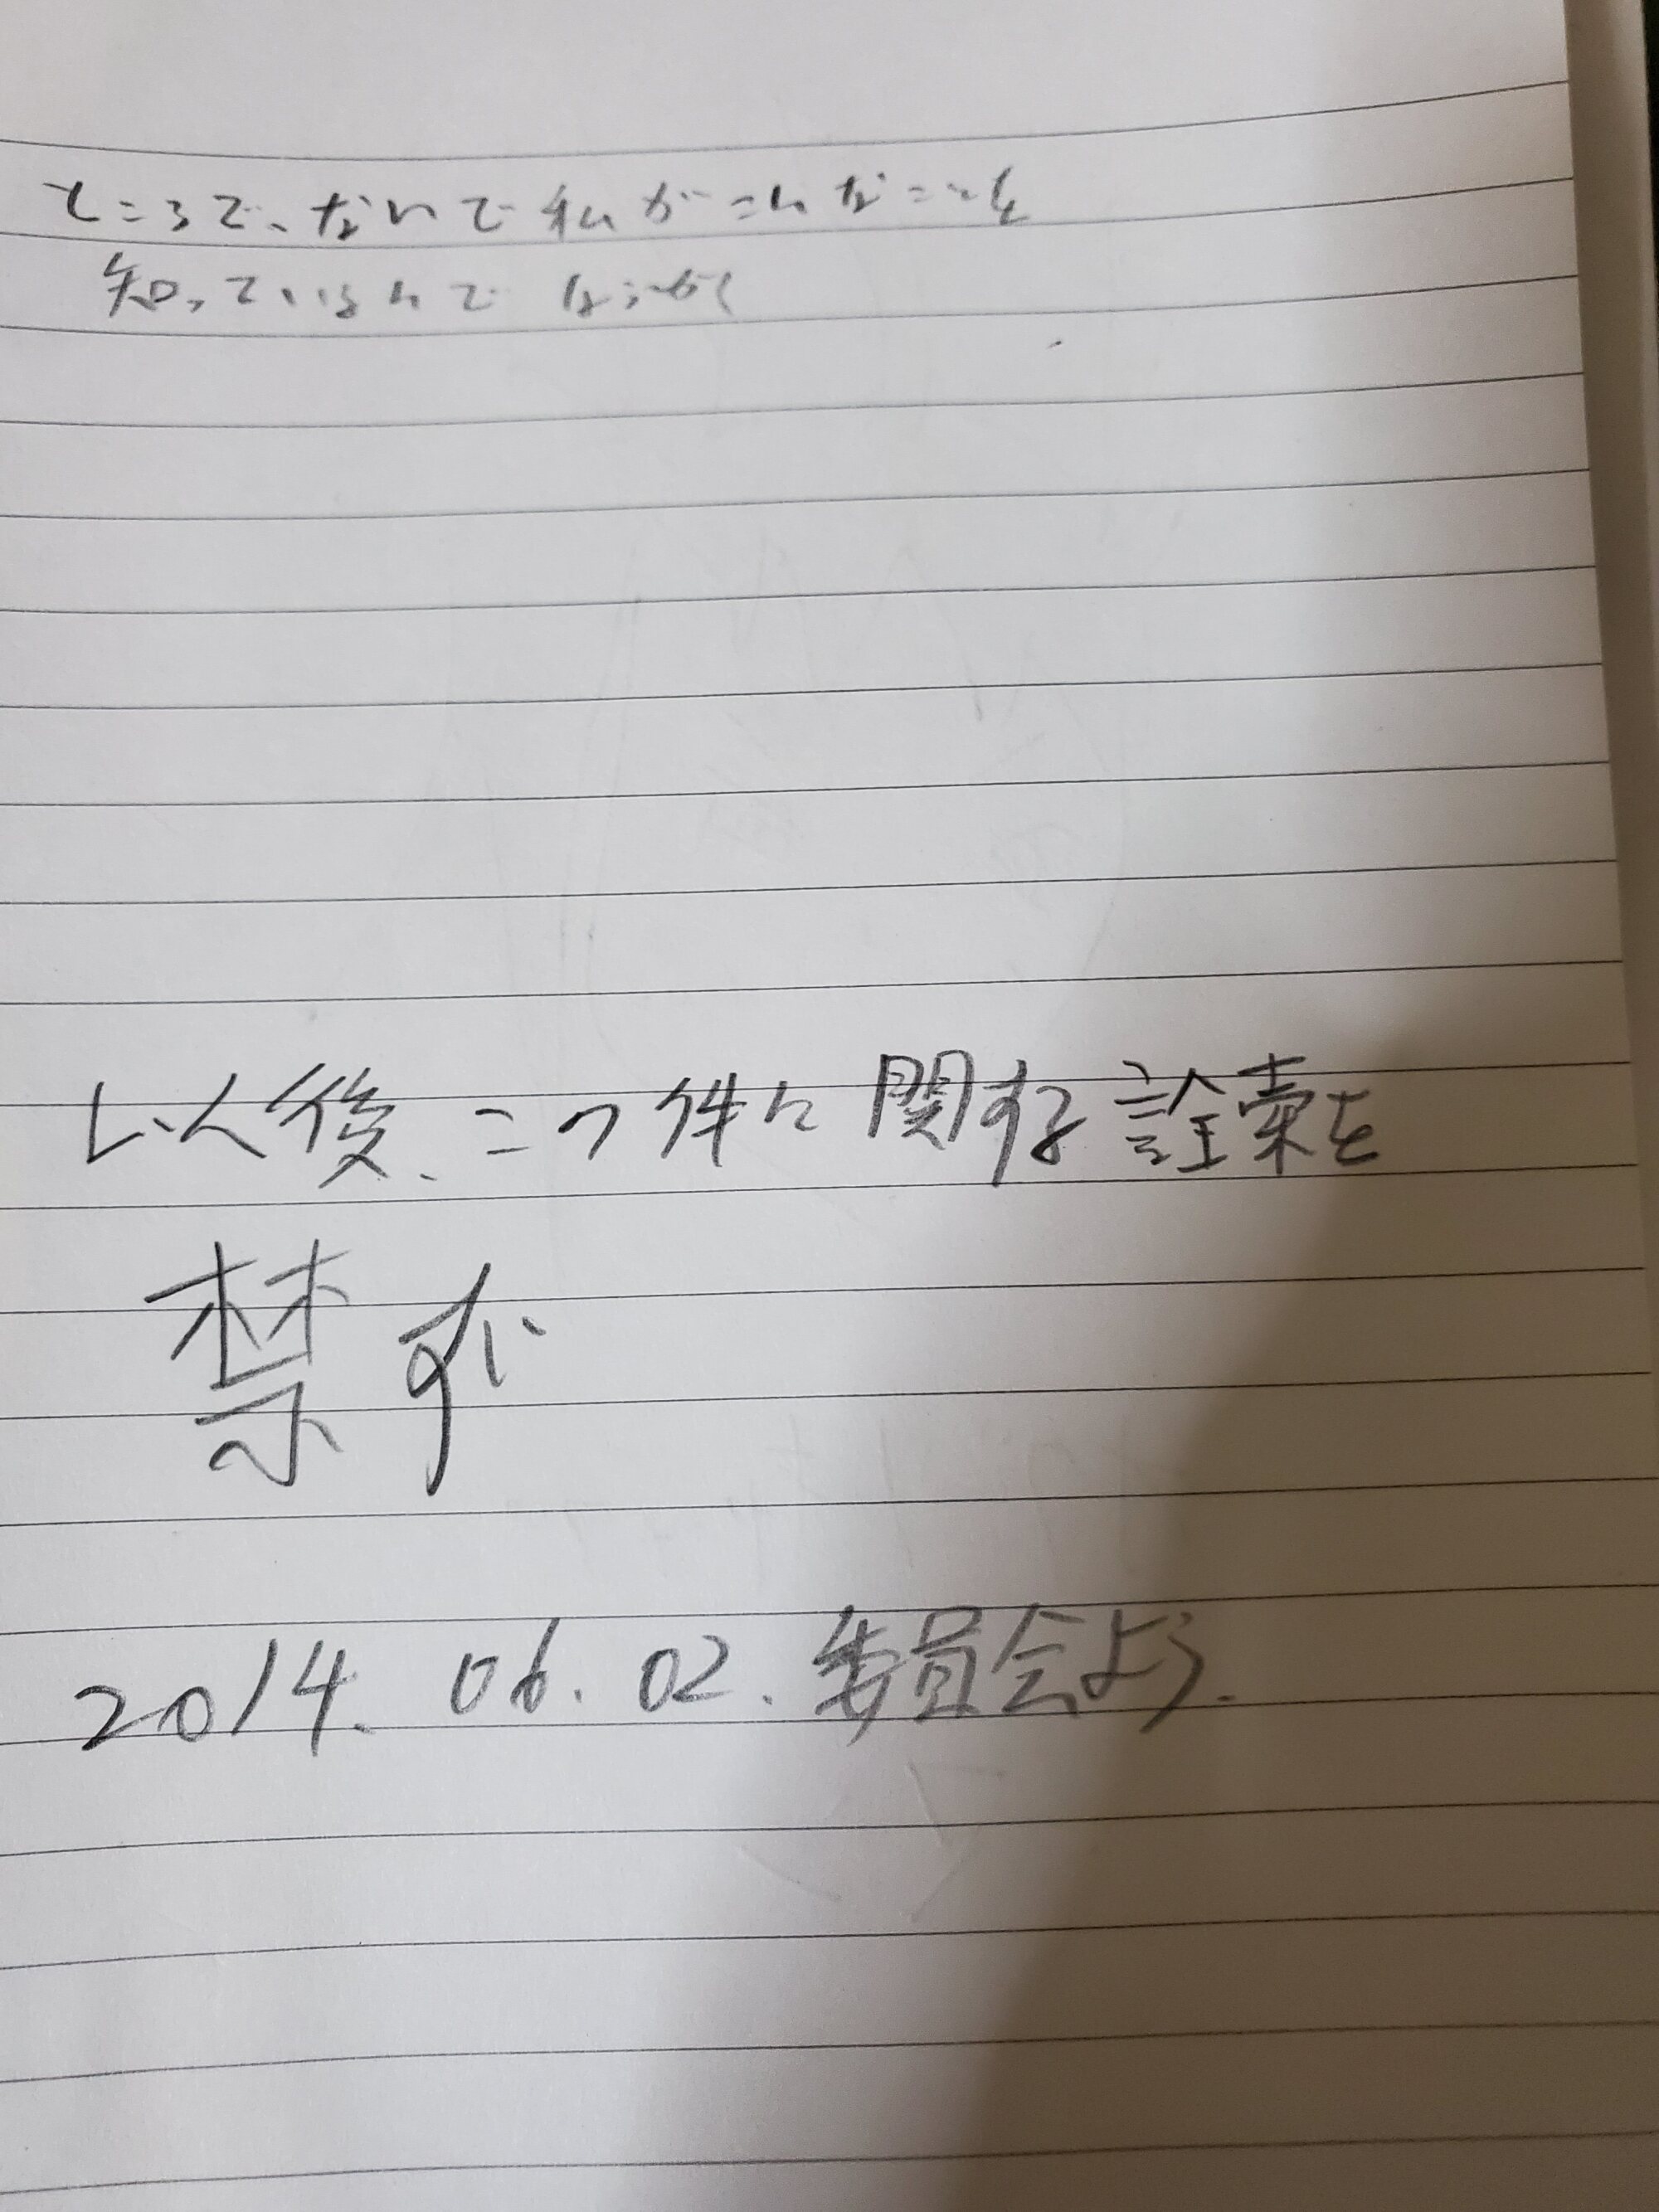 ところで、なんで私がこんなことを
知っているんで
以後、この件に関する詮索を
禁ず
2014.06.02.委員会より.